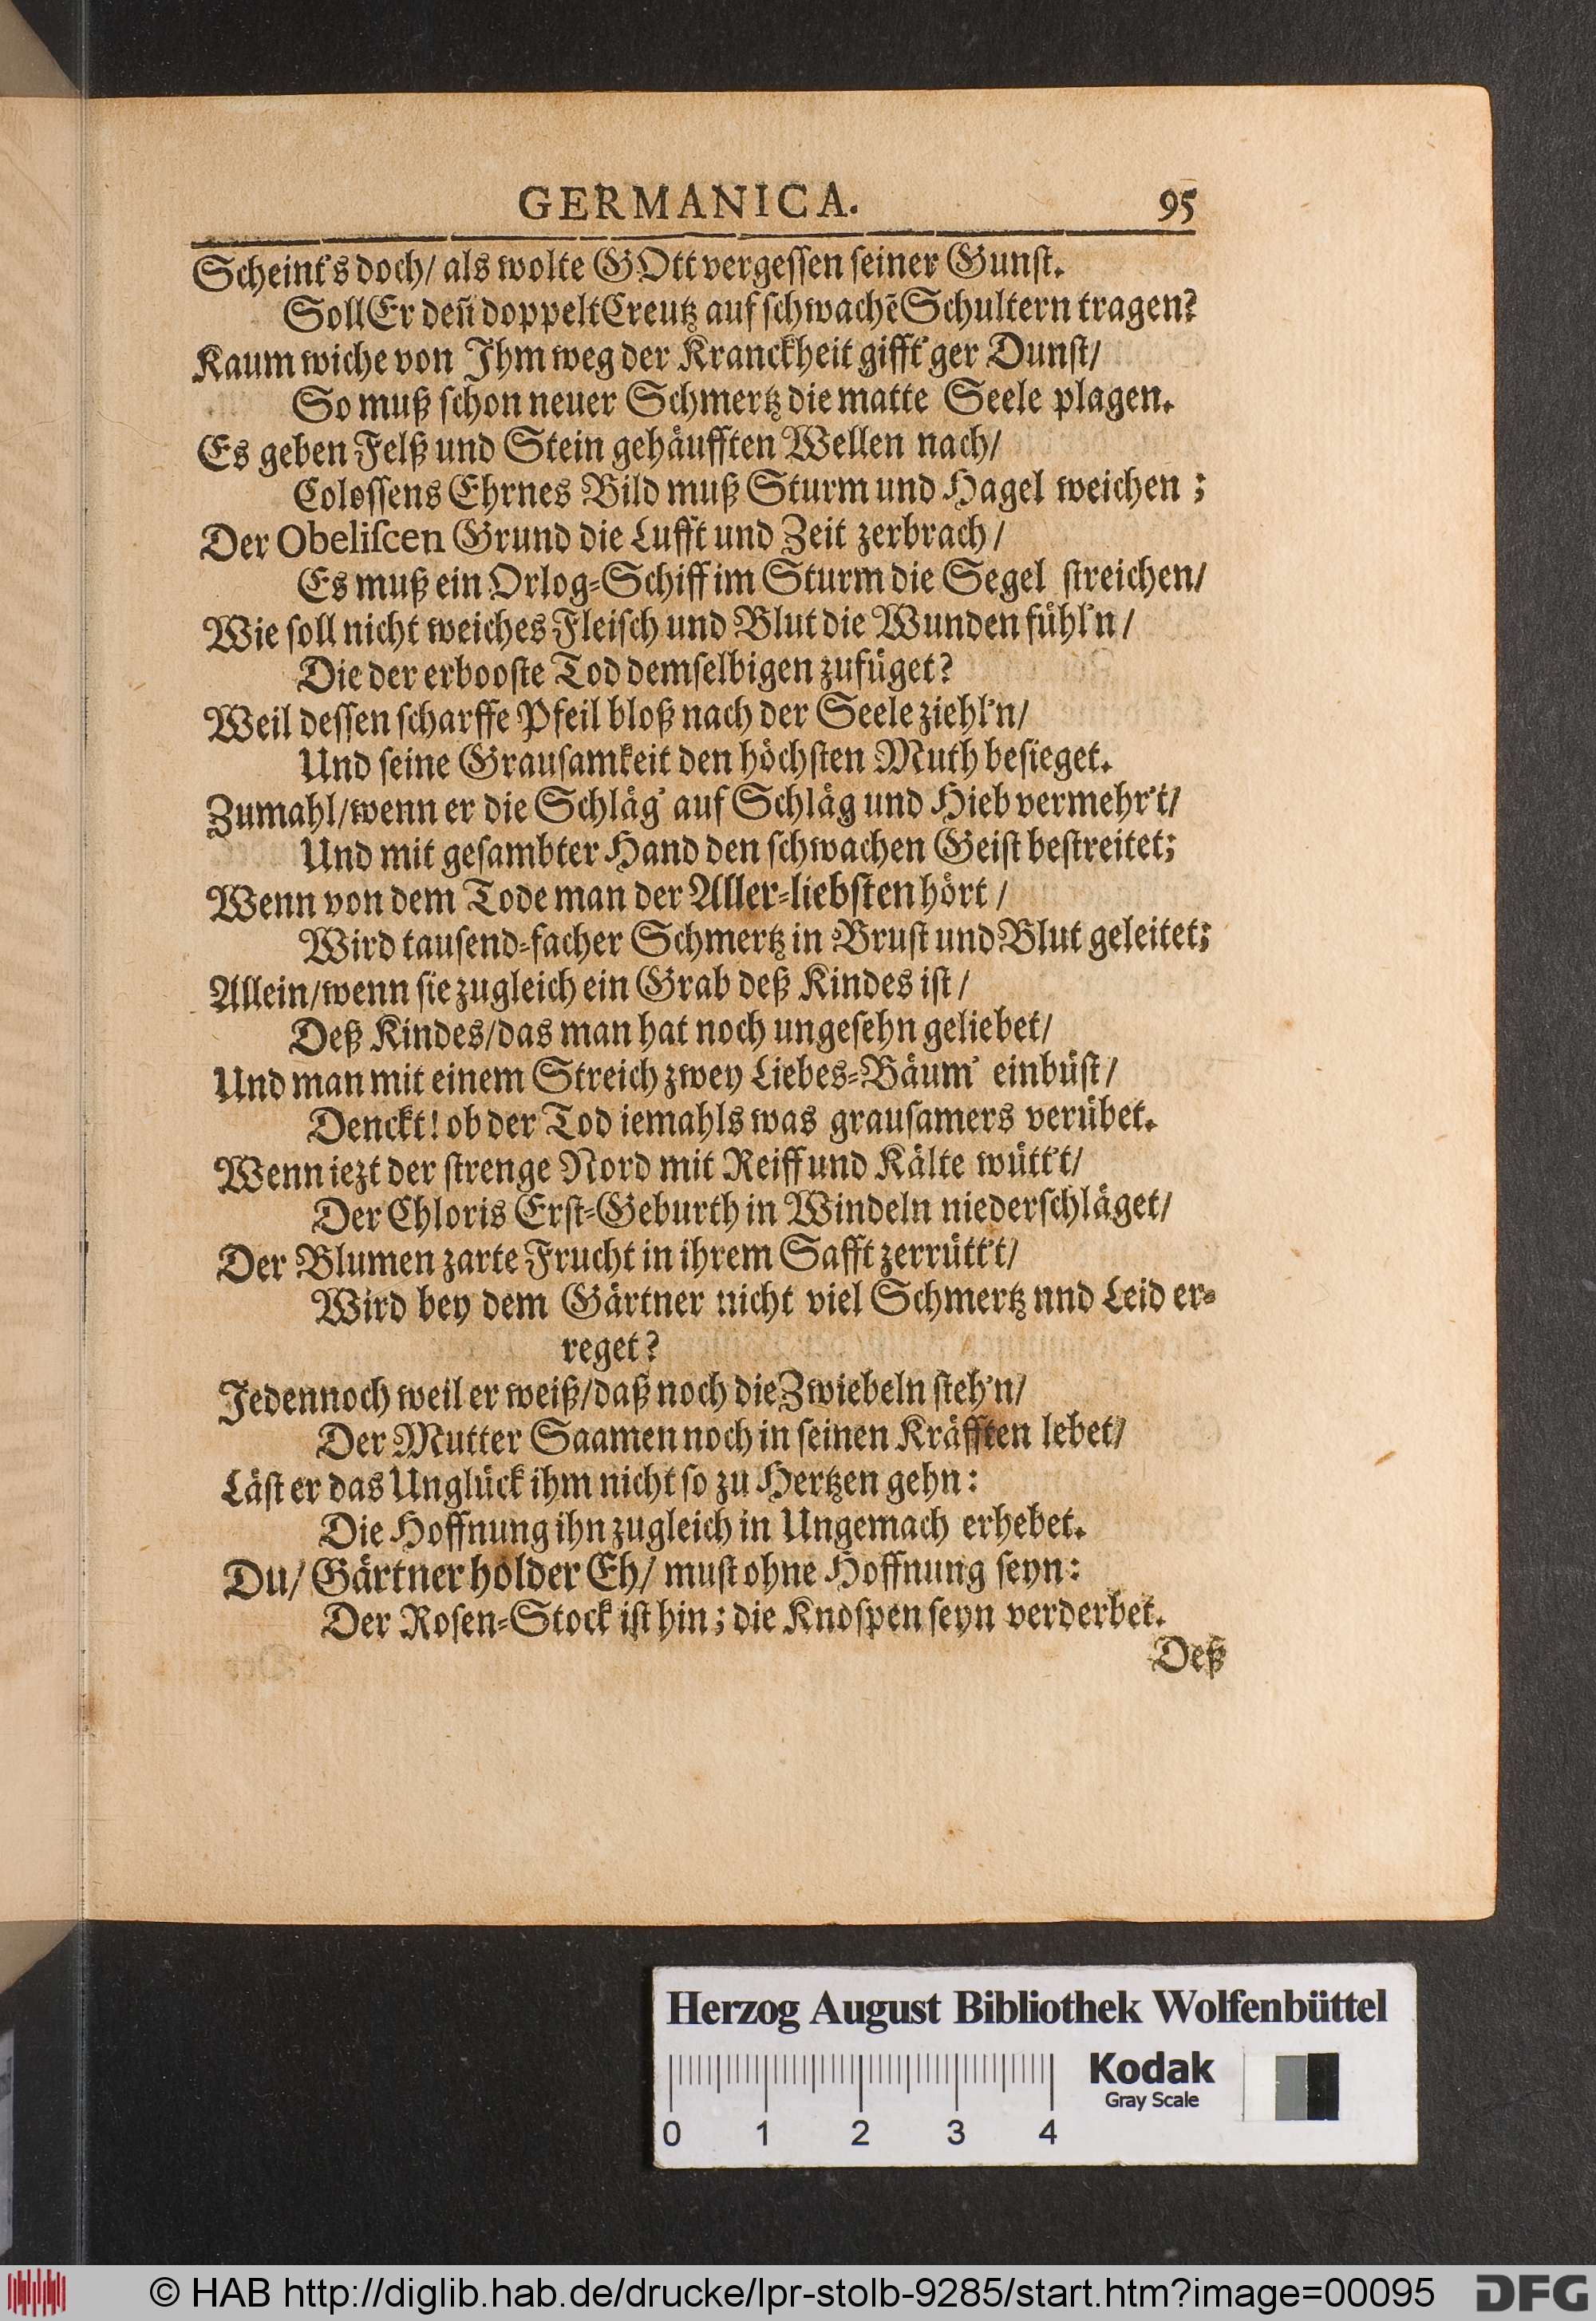 GERMANICA. 95
Scheint's doch/ als wolte GOtt vergessen seiner Gunst.
Soll Er deñ doppelt Creutz auf schwachē Schultern tragen?
Kaum wiche von Jhm weg der Kranckheit gifft'ger Dunst/
So muß schon neuer Schmertz die matte Seele plagen.
Es geben Felß und Stein gehäufften Wellen nach/
Colossens Ehrnes Bild muß Sturm und Hagel weichen ;
Der Obeliſcen Grund die Lufft und Zeit zerbrach /
Es muß ein Orlog-Schiff im Sturm die Segel streichen/
Wie soll nicht weiches Fleisch und Blut die Wunden fühl'n /
Die der erbooste Tod demselbigen zufüget?
Weil dessen scharffe Pfeil bloß nach der Seele ziehl'n/
Und seine Grausamkeit den höchsten Muth besieget.
Zumahl/wenn er die Schläg' auf Schläg und Hieb vermehr't/
Und mit gesambter Hand den schwachen Geist bestreitet;
Wenn von dem Tode man der Aller-liebsten hört /
Wird tausend-facher Schmertz in Brust und Blut geleitet;
Allein/wenn sie zugleich ein Grab deß Kindes ist /
Deß Kindes/das man hat noch ungesehn geliebet/
Und man mit einem Streich zwey Liebes-Bäum' einbüst/
Denckt! ob der Tod iemahls was grausamers verübet.
Wenn iezt der strenge Nord mit Reiff und Kälte wütt't/
Der Chloris Erst-Geburth in Windeln niederschläget/
Der Blumen zarte Frucht in ihrem Safft zerrütt't/
Wird bey dem Gärtner nicht viel Schmertz nnd Leid er-
reget?
Jedennoch weil er weiß/daß noch die Zwiebeln steh'n/
Der Mutter Saamen noch in seinen Kräfften lebet/
Läst er das Unglück ihm nicht so zu Hertzen gehn:
Die Hoffnung ihn zugleich in Ungemach erhebet.
Du/ Gärtner holder Eh/ must ohne Hoffnung seyn:
Der Rosen-Stock ist hin; die Knospen seyn verderbet.
Deß
Herzog August Bibliothek Wolfenbüttel
Kodak
Gray Scale
0 1 2 3 4
© HAB http://diglib.hab.de/drucke/lpr-stolb-9285/start.htm?image=00095 DFG